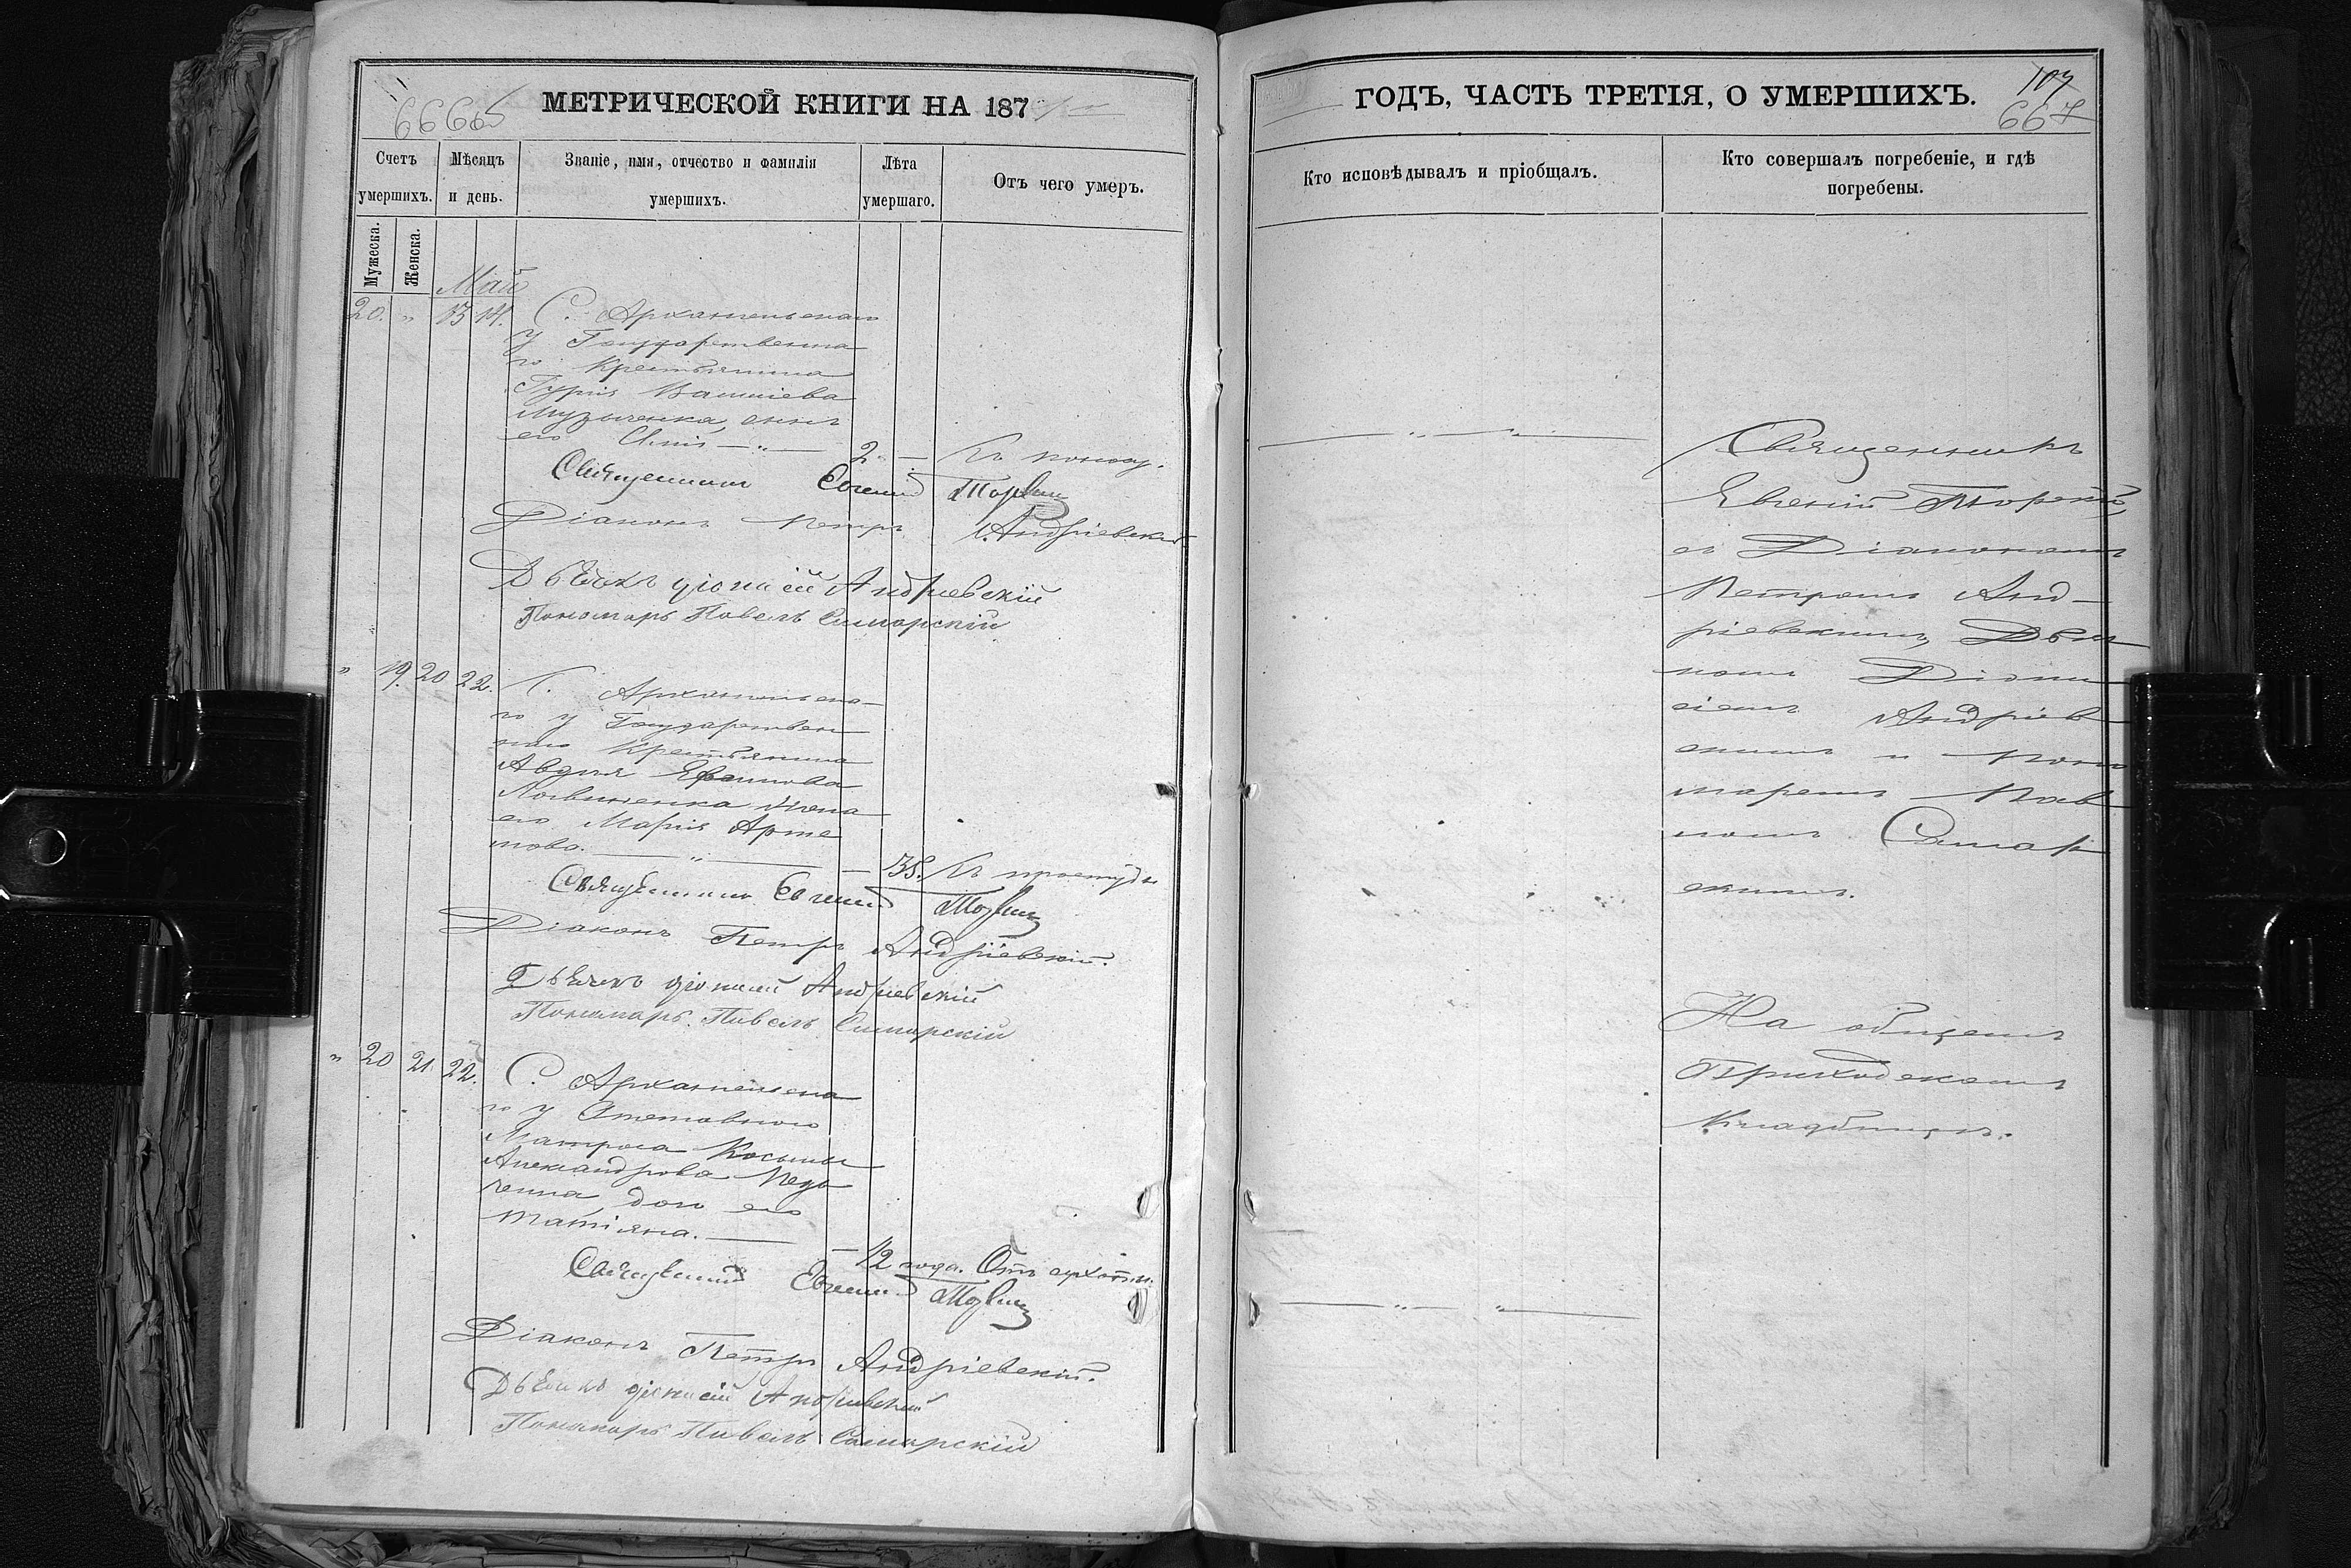 МЕТРИЧЕСКОЙ КНИГИ НА 187
Счетъ умершихъ.
Мужеска.
Женска.
Мѣсяцъ и день.
Званіе, имя, отчество и фамилія умершихъ.
Лѣта умершаго.
Отъ чего умеръ.
Май
20. " 13 14. С. Архангельскаго
у Государственна
го Крестьянина
Гурія
Музыченка, сынъ
его 2 —
Священникъ Евгеній
Діаконъ Петръ Андріевскій
Дьячекъ Діонисій Андріевскій
Пономарь Павелъ Самарскій
" 19. 20 22. С. Архангельска
го у Государствен
наго Крестьянина
Авдія Ефимова
Логвиненка жена
его Марія Арте
мова. — 35. Съ простуды
Священникъ Евгеній
Діаконъ Петръ Андріевскій.
Дьячекъ Діонисій Андріевскій
Пономарь Павелъ Самарскій
" 20 21 22. С. Архангельска
го у Отставного
Матроса Косьмы
Александрова
дочь его
Татіяна. —
— 12 года. Отъ сухоты.
Священникъ Евгеній
Діаконъ Петръ Андріевскій.
Дьячекъ Діонисій Андріевскій
Пономарь Павелъ Самарскій
ГОДЪ, ЧАСТЬ ТРЕТІЯ, О УМЕРШИХЪ.
107
667
Кто исповѣдывалъ и пріобщалъ.
Кто совершалъ погребеніе, и гдѣ
погребены.
Священникъ
Евгеній
съ Діакономъ
Петромъ Анд-
ріевскимъ, Дьяч
комъ Діони
сіемъ Андріев
скимъ и Поно
маремъ Пав
ломъ Самар
скимъ.
На общемъ
Приходскомъ
Кладбищѣ.